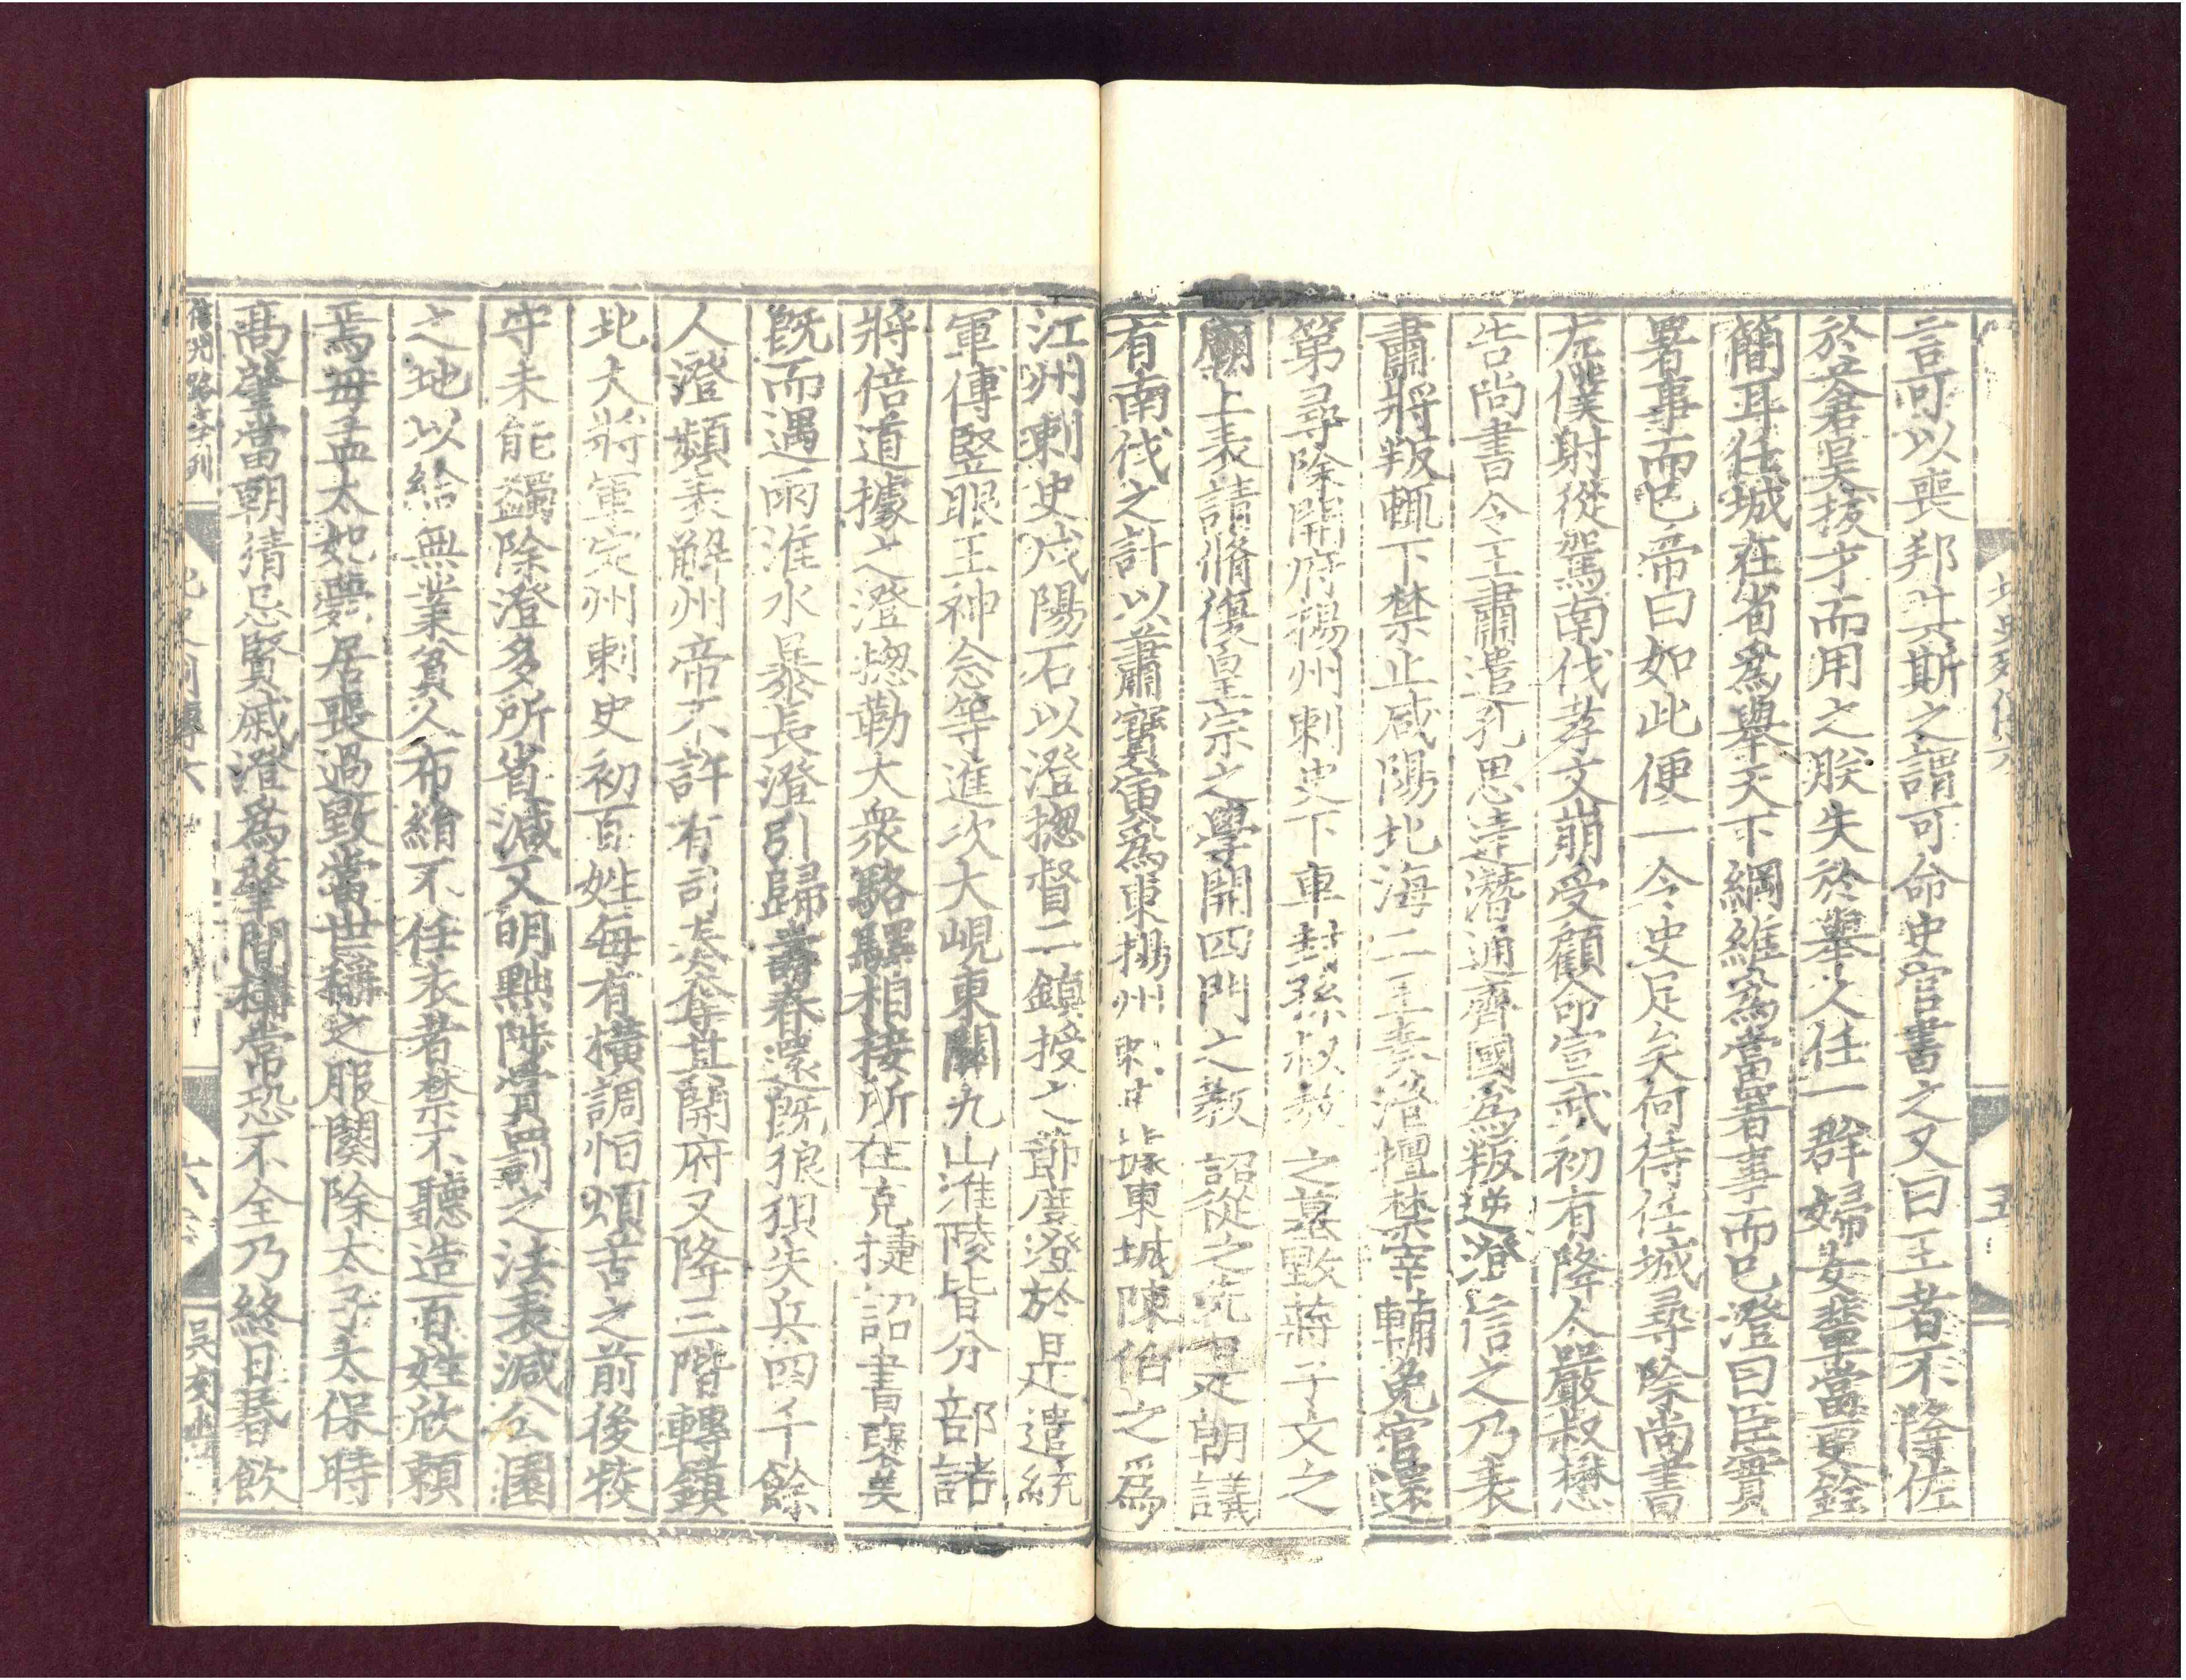 北史列傳六
五
言可以喪邦其斯之謂可命史官書之又曰王者不降佐
於蒼昊拔才而用之朕失於舉人任一群婦女輩當更銓
簡耳任城在省爲舉天下綱維爲當署事而已澄曰臣實
署事而已帝曰如此便一令史足矣何待任城尋除尚書
左僕射從駕南伐孝文崩受顧命宣武初有降人嚴叔懋
告尚書令王肅遣孔思達潛通齊國爲叛逆澄信之乃表
肅將叛輒下禁止咸陽北海二王奏澄擅禁宰輔免官還
第尋除開府揚州刺史下車封孫叔敖之墓毀蔣子文之
廟上表請脩復皇宗之學開四門之教詔從之先是朝議
有南伐之計以蕭寶夤爲東揚州刺史據東城陳伯之爲
江州刺史戍陽石以澄揔督二鎮授之節度澄於是遣統
軍傅竪眼王神念等進次大峴東關九山淮陵皆分部諸
將倍道據之澄揔勒大衆駱驛相接所在克捷詔書襃美
旣而遇雨淮水暴長澄引歸壽春還旣狼狽失兵四千餘
人澄頻表解州帝不許有司奏奪其開府又降三階轉鎮
北大將軍定州刺史初百姓每有横調恒煩苦之前後牧
守未能蠲除澄多所省減又明黜陟賞罰之法表減公園
之地以給無業貧人布絹不任衣者禁不聽造百姓欣賴
焉母孟太妃薨居喪過毀當世稱之服闋除太子太保時
高肇當朝猜忌賢戚澄爲肇間搆常恐不全乃終日昬飲
信州路
北史列傳六
六
吳刻